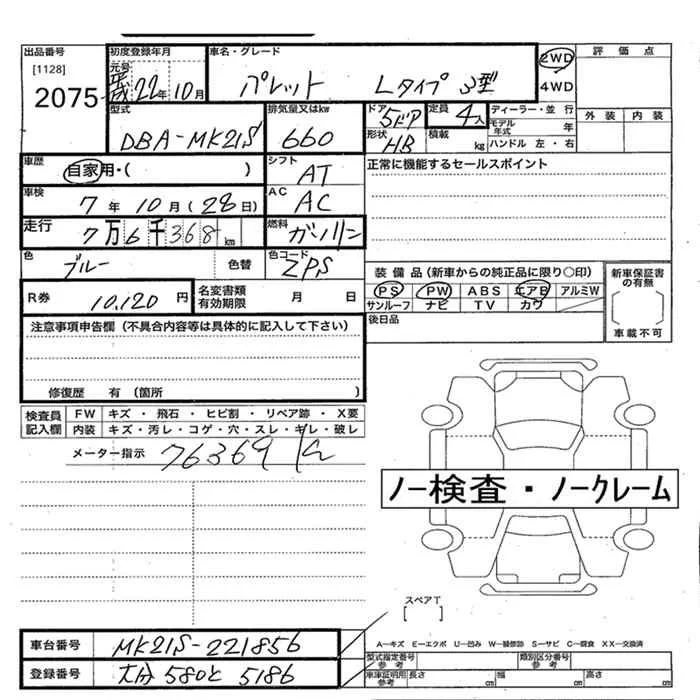 出品番号 初度登録年月 車名・グレード 2WD 評価点
[1128] 元号 4WD
2075 平成22年10月 パレット Lタイプ 3型
型式 排気量又はkw ドア 定員 ディーラー・並行 外装 内装
DBA-MK21S 660 5ドア 4人 モデル年式 年
形状 HB 積載 kg ハンドル 左・右
車歴 自家用・( ) シフト AT 正常に機能するセールスポイント
車検 7年10月(28日) AC AC
走行 7万6千368km 燃料 ガソリン
色 ブルー 色替 色コード ZPS
装備品(新車からの純正品に限り○印) 新車保証書の有無
PS PW ABS エアB アルミW
サンルーフ ナビ TV カワ
R券 10,120円 名変書類有効期限 月 日
後日品 車載不可
注意事項申告欄(不具合内容等は具体的に記入して下さい)
修復歴 有(箇所 )
検査員記入欄 FW キズ・飛石・ヒビ割・リペア跡・X要
内装 キズ・汚レ・コゲ・穴・スレ・キレ・破レ
メーター指示 76369 km
ノー検査・ノークレーム
スペアT
[ ]
A―キズ E―エクボ U―凹み W―補修跡 S―サビ C―腐食 XX―交換済
車台番号 MK21S-221856
型式指定番号 参考 類別区分番号 参考
登録番号 大分580と5186
車庫証明用 参考 長さ cm 幅 cm 高さ cm